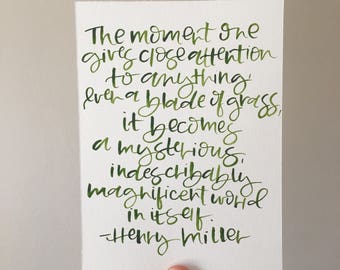 The moment one
gives close attention
to anything,
even a blade of grass,
it becomes
a mysterious,
indescribably
magnificent world
in itself.
-Henry Miller